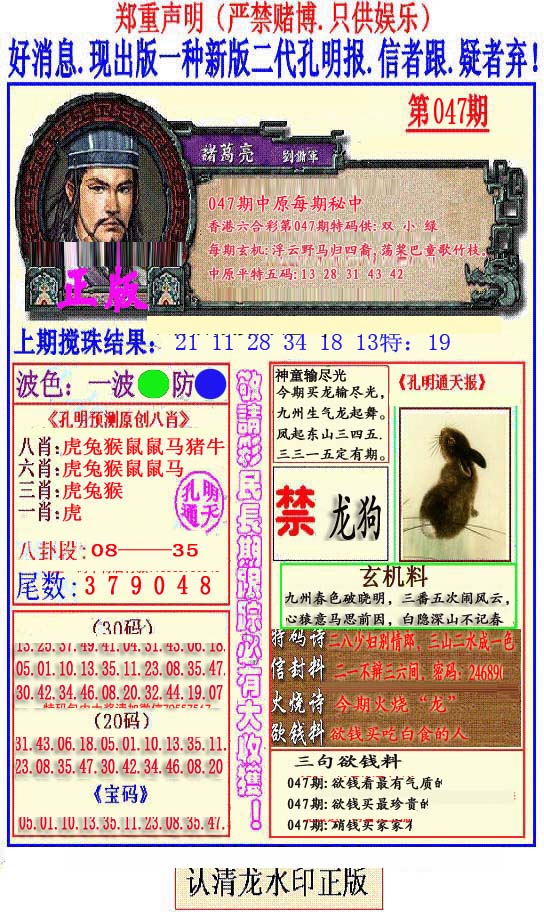 郑重声明（严禁赌博.只供娱乐）
好消息.现出版一种新版二代孔明报.信者跟.疑者弃!
第047期
諸葛亮 劉備軍
047期中原每期秘中
香港六合彩第047期特码供: 双 小 绿
每期玄机:浮云野马归四裔,荡桨巴童歌竹枝.
中原平特五码: 13 28 31 43 42
正版
上期搅珠结果: 21 11 28 34 18 13特: 19
波色: 一波 防
《孔明预测原创八肖》
八肖:虎兔猴鼠鼠马猪牛
六肖:虎兔猴鼠鼠马
三肖:虎兔猴
一肖:虎
孔明通天
八卦段:08——35
尾数:379048
(30码)
13.25.37.49.41.04.31.43.06.18.
05.01.10.13.35.11.23.08.35.47.
30.42.34.46.08.20.32.44.19.07
(20码)
31.43.06.18.05.01.10.13.35.11.
23.08.35.47.30.42.34.46.08.20
《宝码》
05.01.10.13.35.11.23.08.35.47.
敬請彩民長期跟踪必有大收獲!
神童输尽光
今期买龙输尽光,
九州生气龙起舞。
凤起东山三四五.
三三一五定有期。
《孔明通天报》
禁 龙狗
玄机料
九州春色破晓明，三番五次闹风云，
心猿意马思前因，白隐深山不记春
特码诗 二八少妇别情郎, 三山二水成一色
信封料 二一不辩三六间, 密码: 24689
火烧诗 今期火烧“龙”
欲钱料 欲钱买吃白食的人
三句欲钱料
047期: 欲钱看最有气质的
047期: 欲钱买最珍贵的
047期: 欲钱买家家
认清龙水印正版